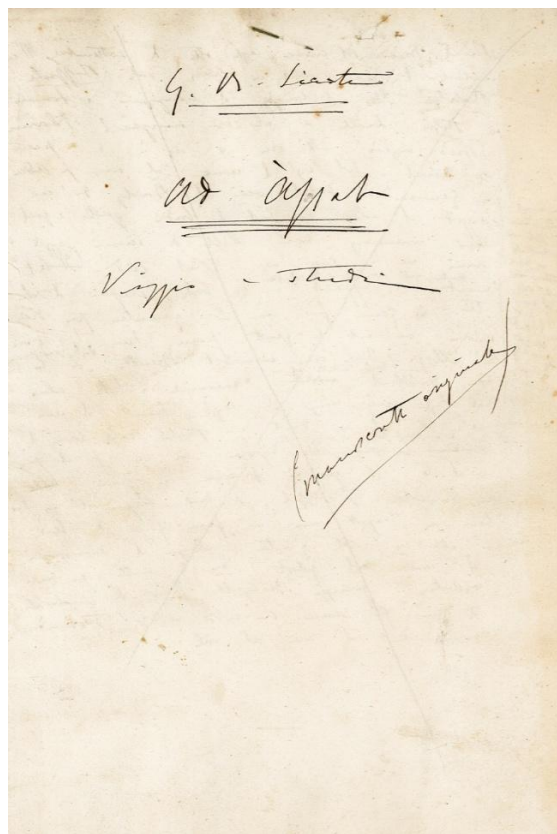 G. B. Licata
Ad Assab
Viaggio e studi
(manoscritto originale)